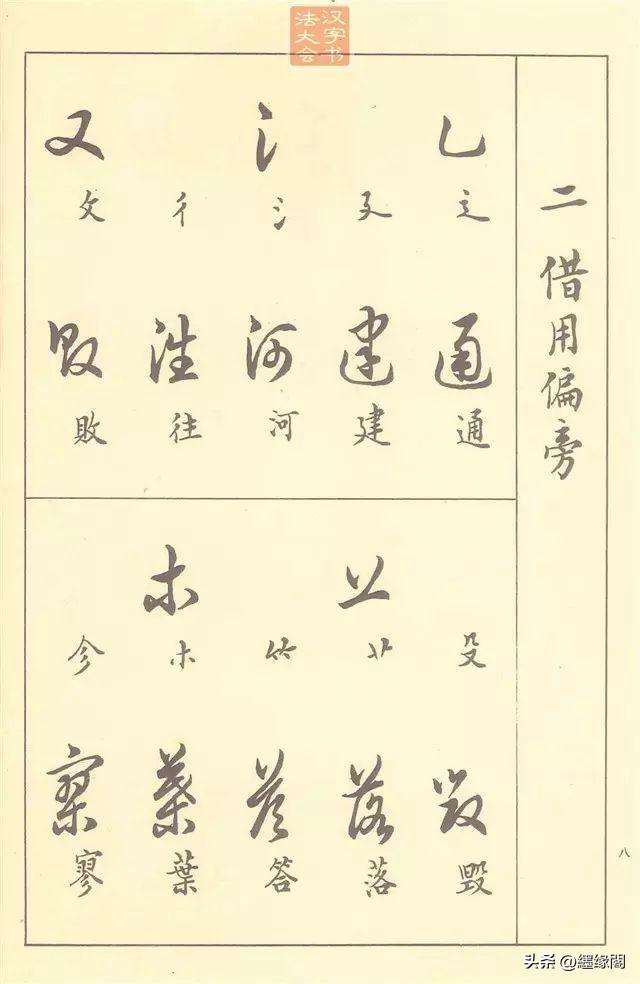 汉字书
法大会
二 借用偏旁
辶 廴 氵 彳 攵
通 建 河 往 敗
通 建 河 往 敗
木
殳 艹 木
毀 落 答 葉 寥
毀 落 答 葉 寥
八
头条 @纒缘閣